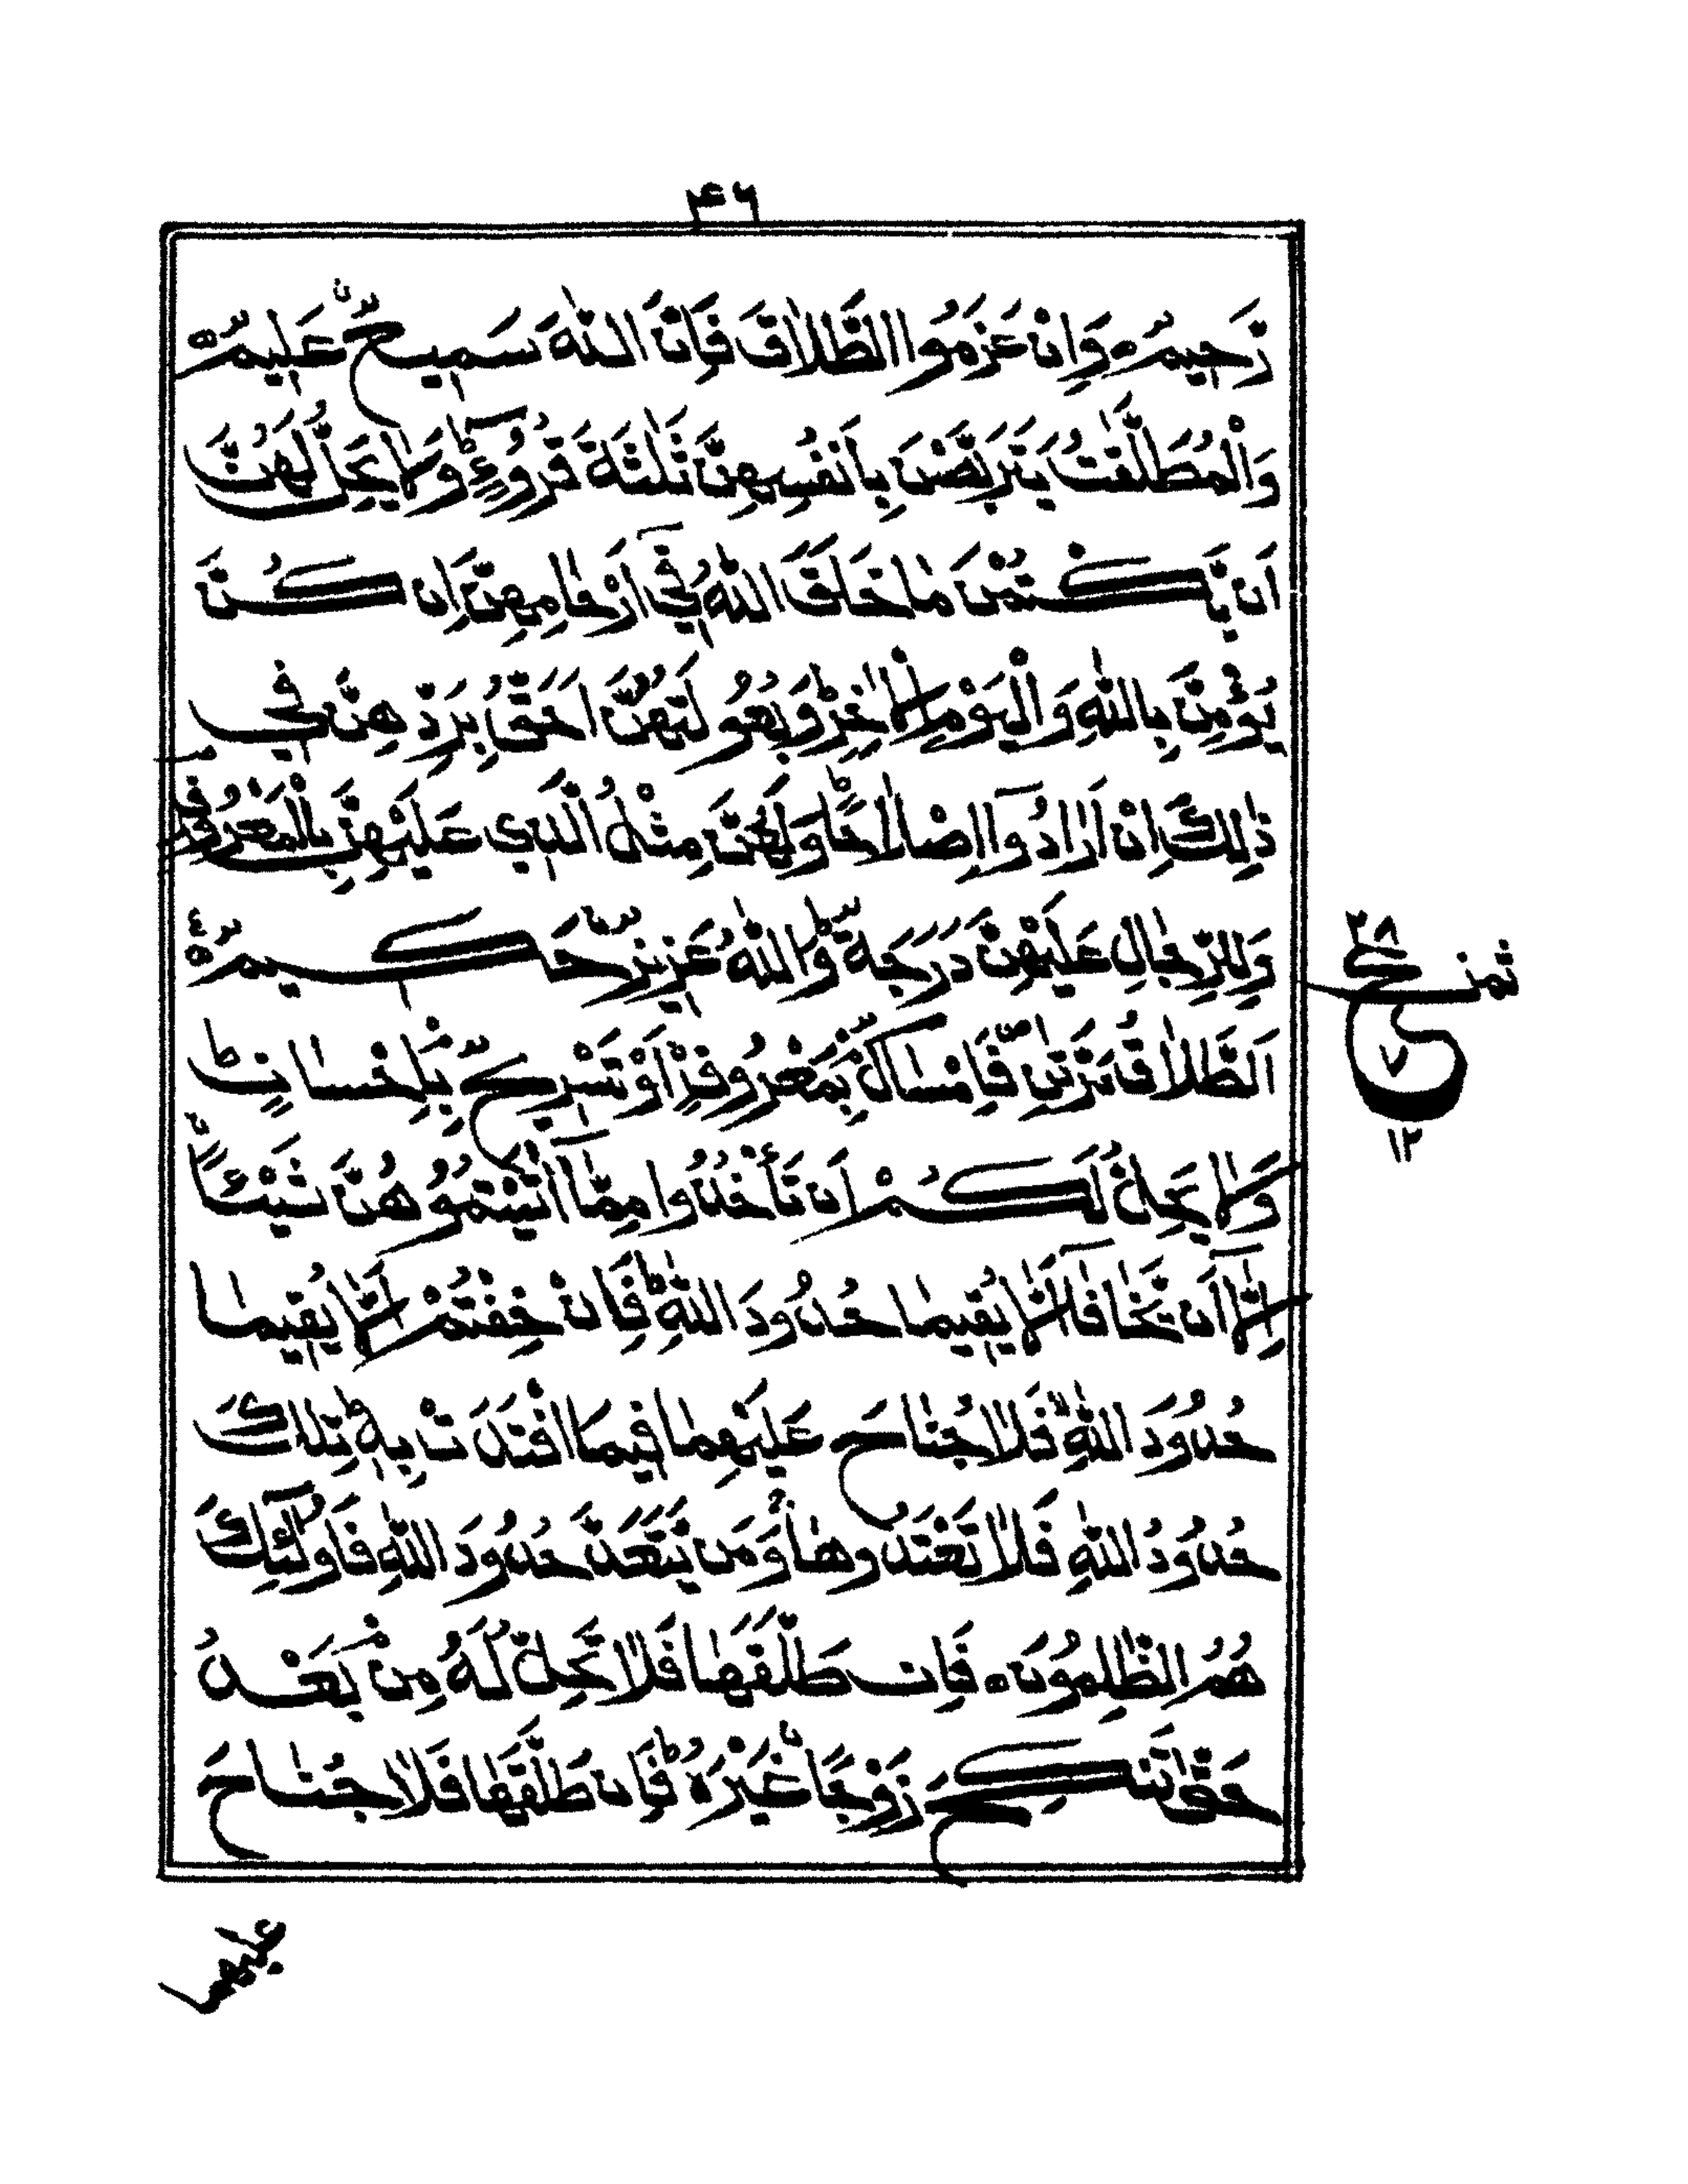 ۴۶
رَّحِيمٌ ه وَاِنْ عَزَمُوا الطَّلَاقَ فَاِنَّ اللّٰهَ سَمِيعٌ عَلِيمٌ ه
وَالْمُطَلَّقٰتُ يَتَرَبَّصْنَ بِاَنفُسِهِنَّ ثَلٰثَةَ قُرُوٓءٍ ط وَلَا يَحِلُّ لَهُنَّ
اَن يَّكْتُمْنَ مَا خَلَقَ اللّٰهُ فِيٓ اَرْحَامِهِنَّ اِن كُنَّ
يُؤْمِنَّ بِاللّٰهِ وَالْيَوْمِ الْاٰخِرِ ط وَبُعُولَتُهُنَّ اَحَقُّ بِرَدِّهِنَّ فِي
ذٰلِكَ اِنْ اَرَادُوٓا اِصْلَاحًا ط وَلَهُنَّ مِثْلُ الَّذِي عَلَيْهِنَّ بِالْمَعْرُوفِ ص
وَلِلرِّجَالِ عَلَيْهِنَّ دَرَجَةٌ ط وَاللّٰهُ عَزِيزٌ حَكِيمٌ ه ع
اَلطَّلَاقُ مَرَّتٰنِ ص فَاِمْسَاكٌ بِمَعْرُوفٍ اَوْ تَسْرِيحٌ بِاِحْسَانٍ ط
وَلَا يَحِلُّ لَكُمْ اَن تَأْخُذُوا مِمَّآ اٰتَيْتُمُوهُنَّ شَيْـًٔا
اِلَّآ اَن يَّخَافَآ اَلَّا يُقِيمَا حُدُودَ اللّٰهِ ط فَاِنْ خِفْتُمْ اَلَّا يُقِيمَا
حُدُودَ اللّٰهِ لا فَلَا جُنَاحَ عَلَيْهِمَا فِيمَا افْتَدَتْ بِهٖ ط تِلْكَ
حُدُودُ اللّٰهِ فَلَا تَعْتَدُوهَا ج وَمَن يَّتَعَدَّ حُدُودَ اللّٰهِ فَاُولٰٓئِكَ
هُمُ الظّٰلِمُونَ ه فَاِن طَلَّقَهَا فَلَا تَحِلُّ لَهُ مِنْ بَعْدُ
حَتّٰى تَنكِحَ زَوْجًا غَيْرَهُ ط فَاِن طَلَّقَهَا فَلَا جُنَاحَ
ثمن
ع
٧
١٢